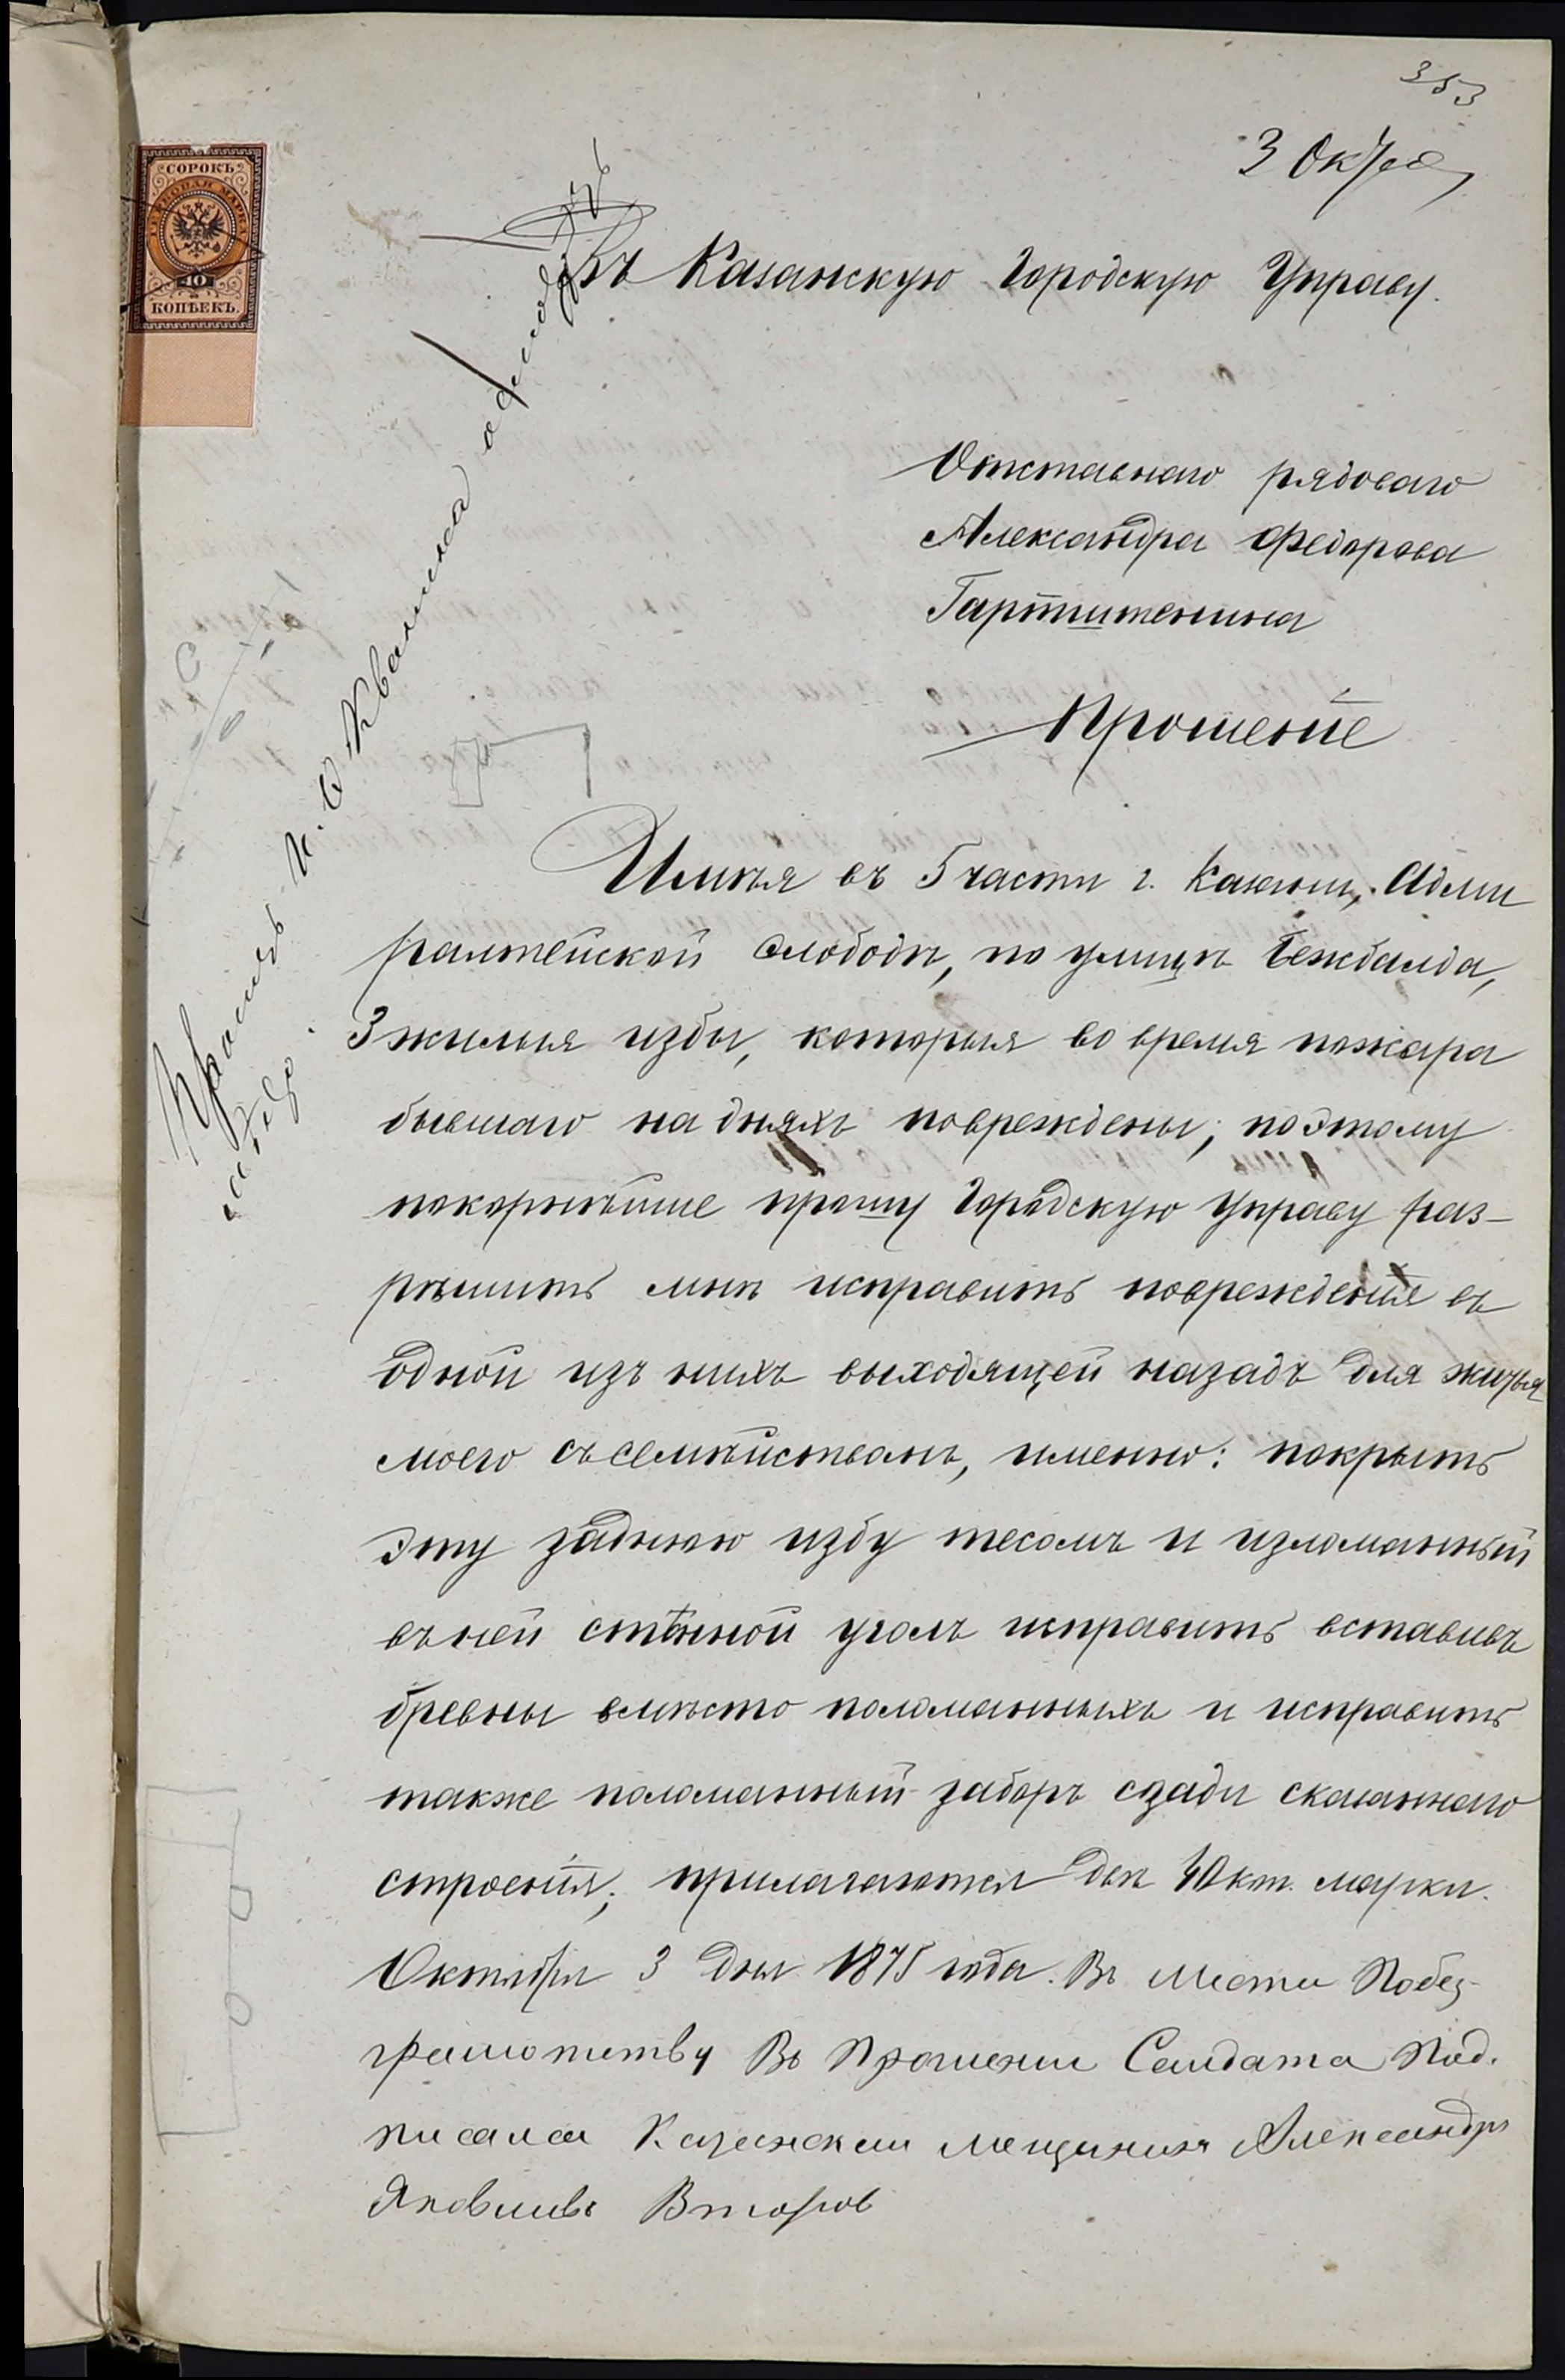 353
3 Окт
СОРОКЪ
ГЕРБОВАЯ МАРКА
40
КОПѢЕКЪ.
Въ Казанскую Городскую Управу.
Отставнаго рядоваго
Александра Федорова
Гартштенина
Прошеніе
Имѣя въ 5 части г. Казани, Адми
ралтейской слободы, по улицѣ Бежбалда,
3 жилыя избы, которыя во время пожара
бывшаго на дняхъ повреждены; поэтому
покорнѣйше прошу Городскую Управу раз-
рѣшить мнѣ исправить поврежденіе въ
одной изъ нихъ выходящей назадъ для житья
моего съ семѣйствомъ, именно: покрыть
эту заднюю избу тесомъ и изломанный
въ ней стѣнной уголъ исправить вставивъ
бревны вмѣсто поломанныхъ и исправить
также поломанный заборъ сзади сказаннаго
строенія; прилагаются двѣ 40 коп. марки.
Октября 3 дня 1875 года. Въ мести Побез-
грамотству Въ Прошении Салдата Под.
писался Казанскеи мещининъ Александръ
Яковливъ Второв
Просить И. О. Квалина